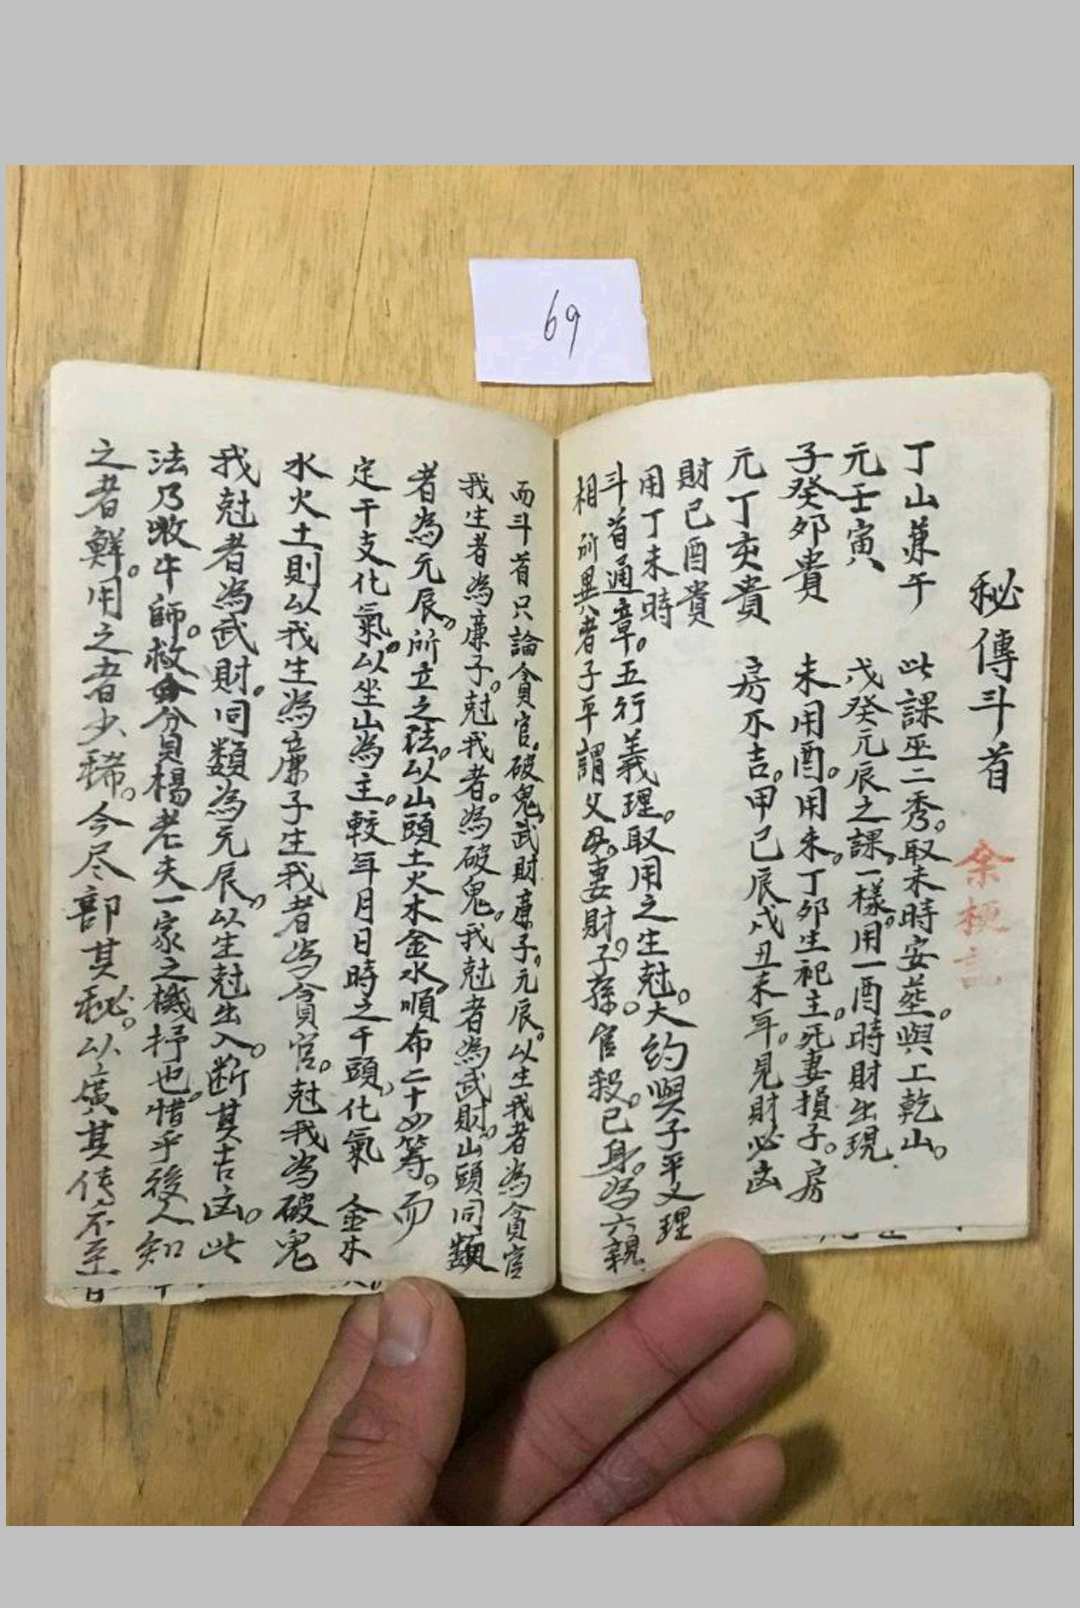 69
秘傳斗首
丁山兼午 此課巫二秀。取未時安塟。與上乾山。
元壬寅 戊癸元辰之課。一樣。用一酉時財出現
子癸卯貴 未用酉。用未。丁卯生祀主。死妻損子。房
元丁亥貴 房不吉。甲己辰戌丑未年。見財必凶
財己酉貴
用丁未時
斗首通章。五行義理。取用之生尅。大約與子平义理
相所異者子平謂父母。妻財。子孫。官殺。己身。為六親
而斗首只論貪官。破鬼。武財廉子。元辰。以生我者為貪官
我生者為廉子。尅我者。為破鬼。我尅者為武財。山頭同類
者為元辰。所立之法。以山頭土火木金水順布二十四等。而
定干支化氣。以坐山為主。較年月日時之干頭。化氣 金木
水火土則以我生為廉子生我者為貪官。尅我為破鬼
我尅者為武財。同類為元辰。以生尅出入。断其吉凶。此
法乃救牛師。救貧楊老夫一家之機抒也。惜乎後人知
之者鮮。用之者少稀。今尽部其秘。以廣其傳不至